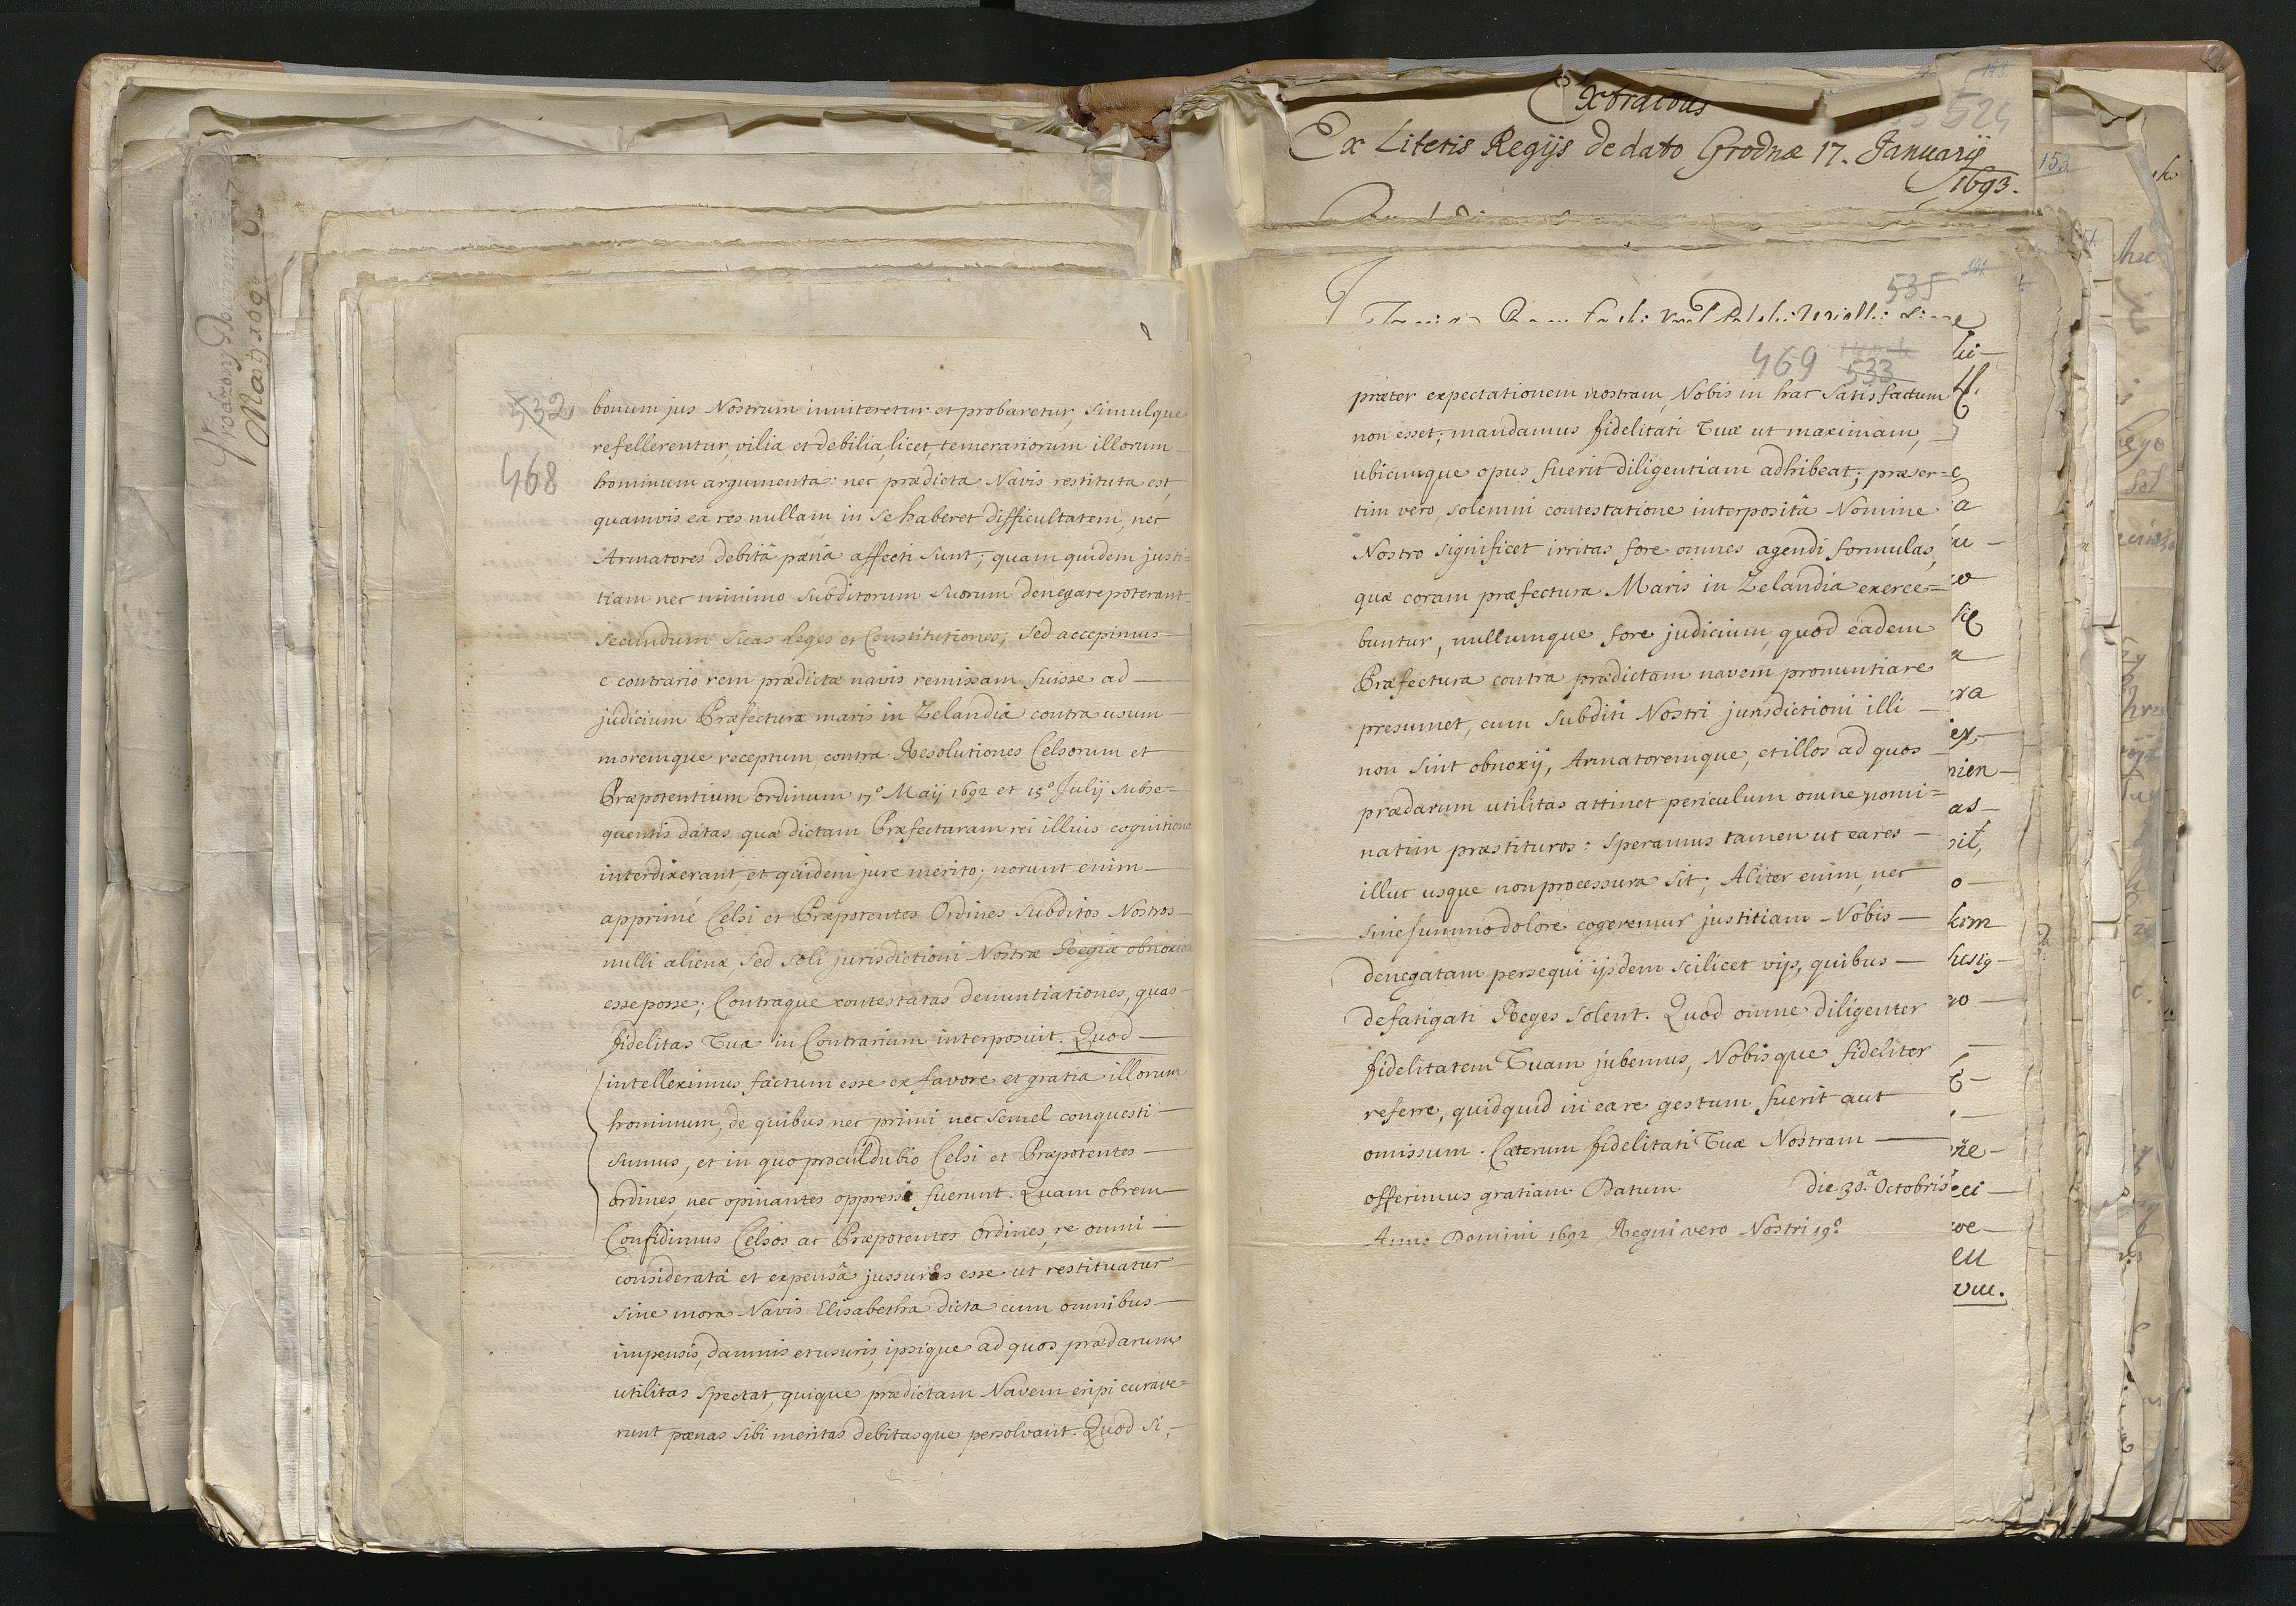 532
468
bonum jus Nostrum inniteretur et probaretur, simulque
refellerentur, vilia et debilia, licet, temerariorum illorum
hominum argumenta: nec prædicta Navis restituta est,
quamvis ea res nullam in se haberet difficultatem, nec
Armatores debitâ pænâ affecti sunt; quam quidem justi=
tiam nec minimo subditorum suorum denegare poterant
secundum suas leges et Constitutiones; sed accepimus
e contrario rem prædictæ navis remissam fuisse ad
judicium Præfecturæ maris in Zelandiâ contra usum
moremque receptum contra Resolutiones Celsorum et
Præpotentium ordinum 17º Maij 1692 et 15º Julij subse=
quentis datas, quæ dictam Præfecturam rei illius cognitione
interdixerant, et quidem jure merito; norunt enim
apprimé Celsi et Præpotentes Ordines Subditos Nostros
nulli alienæ, sed soli jurisdictioni Nostræ Regiæ obnoxios
esse posse; Contraque contestatas denuntiationes, quas
fidelitas Tua in Contrarium interposuit. Quod
intelleximus factum esse ex favore et gratia illorum
hominum, de quibus nec primi nec semel conquesti
sumus, et in quo proculdubio Celsi et Præpotentes
ordines, nec opinantes oppressi fuerunt. Quam obrem
Confidimus Celsos ac Præpotentes ordines, re omni
consideratâ et expensâ jussuros esse ut restituatur
sine mora Navis Elisabetha dicta cum omnibus
impensis, damnis et usuris, ipsique ad quos prædarum
utilitas spectat, quique prædictam Navem eripi curave=
runt pænas sibi meritas debitasque persolvant. Quod si,
Extractus
524
Ex Literis Regijs de dato Grodnæ 17. Januarij
1693.
153
535
469
533
præter expectationem nostram, Nobis in hac satisfactum
non esset; mandamus fidelitati Tuæ ut maximam,
ubicumque opus fuerit diligentiam adhibeat; præser=
tim vero, solemni contestatione interpositâ Nomine
Nostro significet irritas fore omnes agendi formulas,
quæ coram præfectura Maris in Zelandia exerce=
buntur, nullumque fore judicium, quod eadem
Præfectura contra prædictam navem pronuntiare
presumet, cum Subditi Nostri jurisdictioni illi
non sint obnoxij, Armatoremque, et illos ad quos
prædarum utilitas attinet periculum omne nomi=
natim præstituros: speramus tamen ut ea res
illuc usque non processura sit; Aliter enim, nec
sine summo dolore cogeremur justitiam Nobis
denegatam persequi ijsdem scilicet vijs, quibus
defatigati Reges solent. Quod omne diligenter
fidelitatem Tuam jubemus, Nobisque fideliter
referre, quidquid in ea re gestum fuerit aut
omissum. Cæterum fidelitati Tuæ Nostram
offerimus gratiam Datum die 30.ª Octobris
Anno Domini 1692 Regni vero Nostri 19º